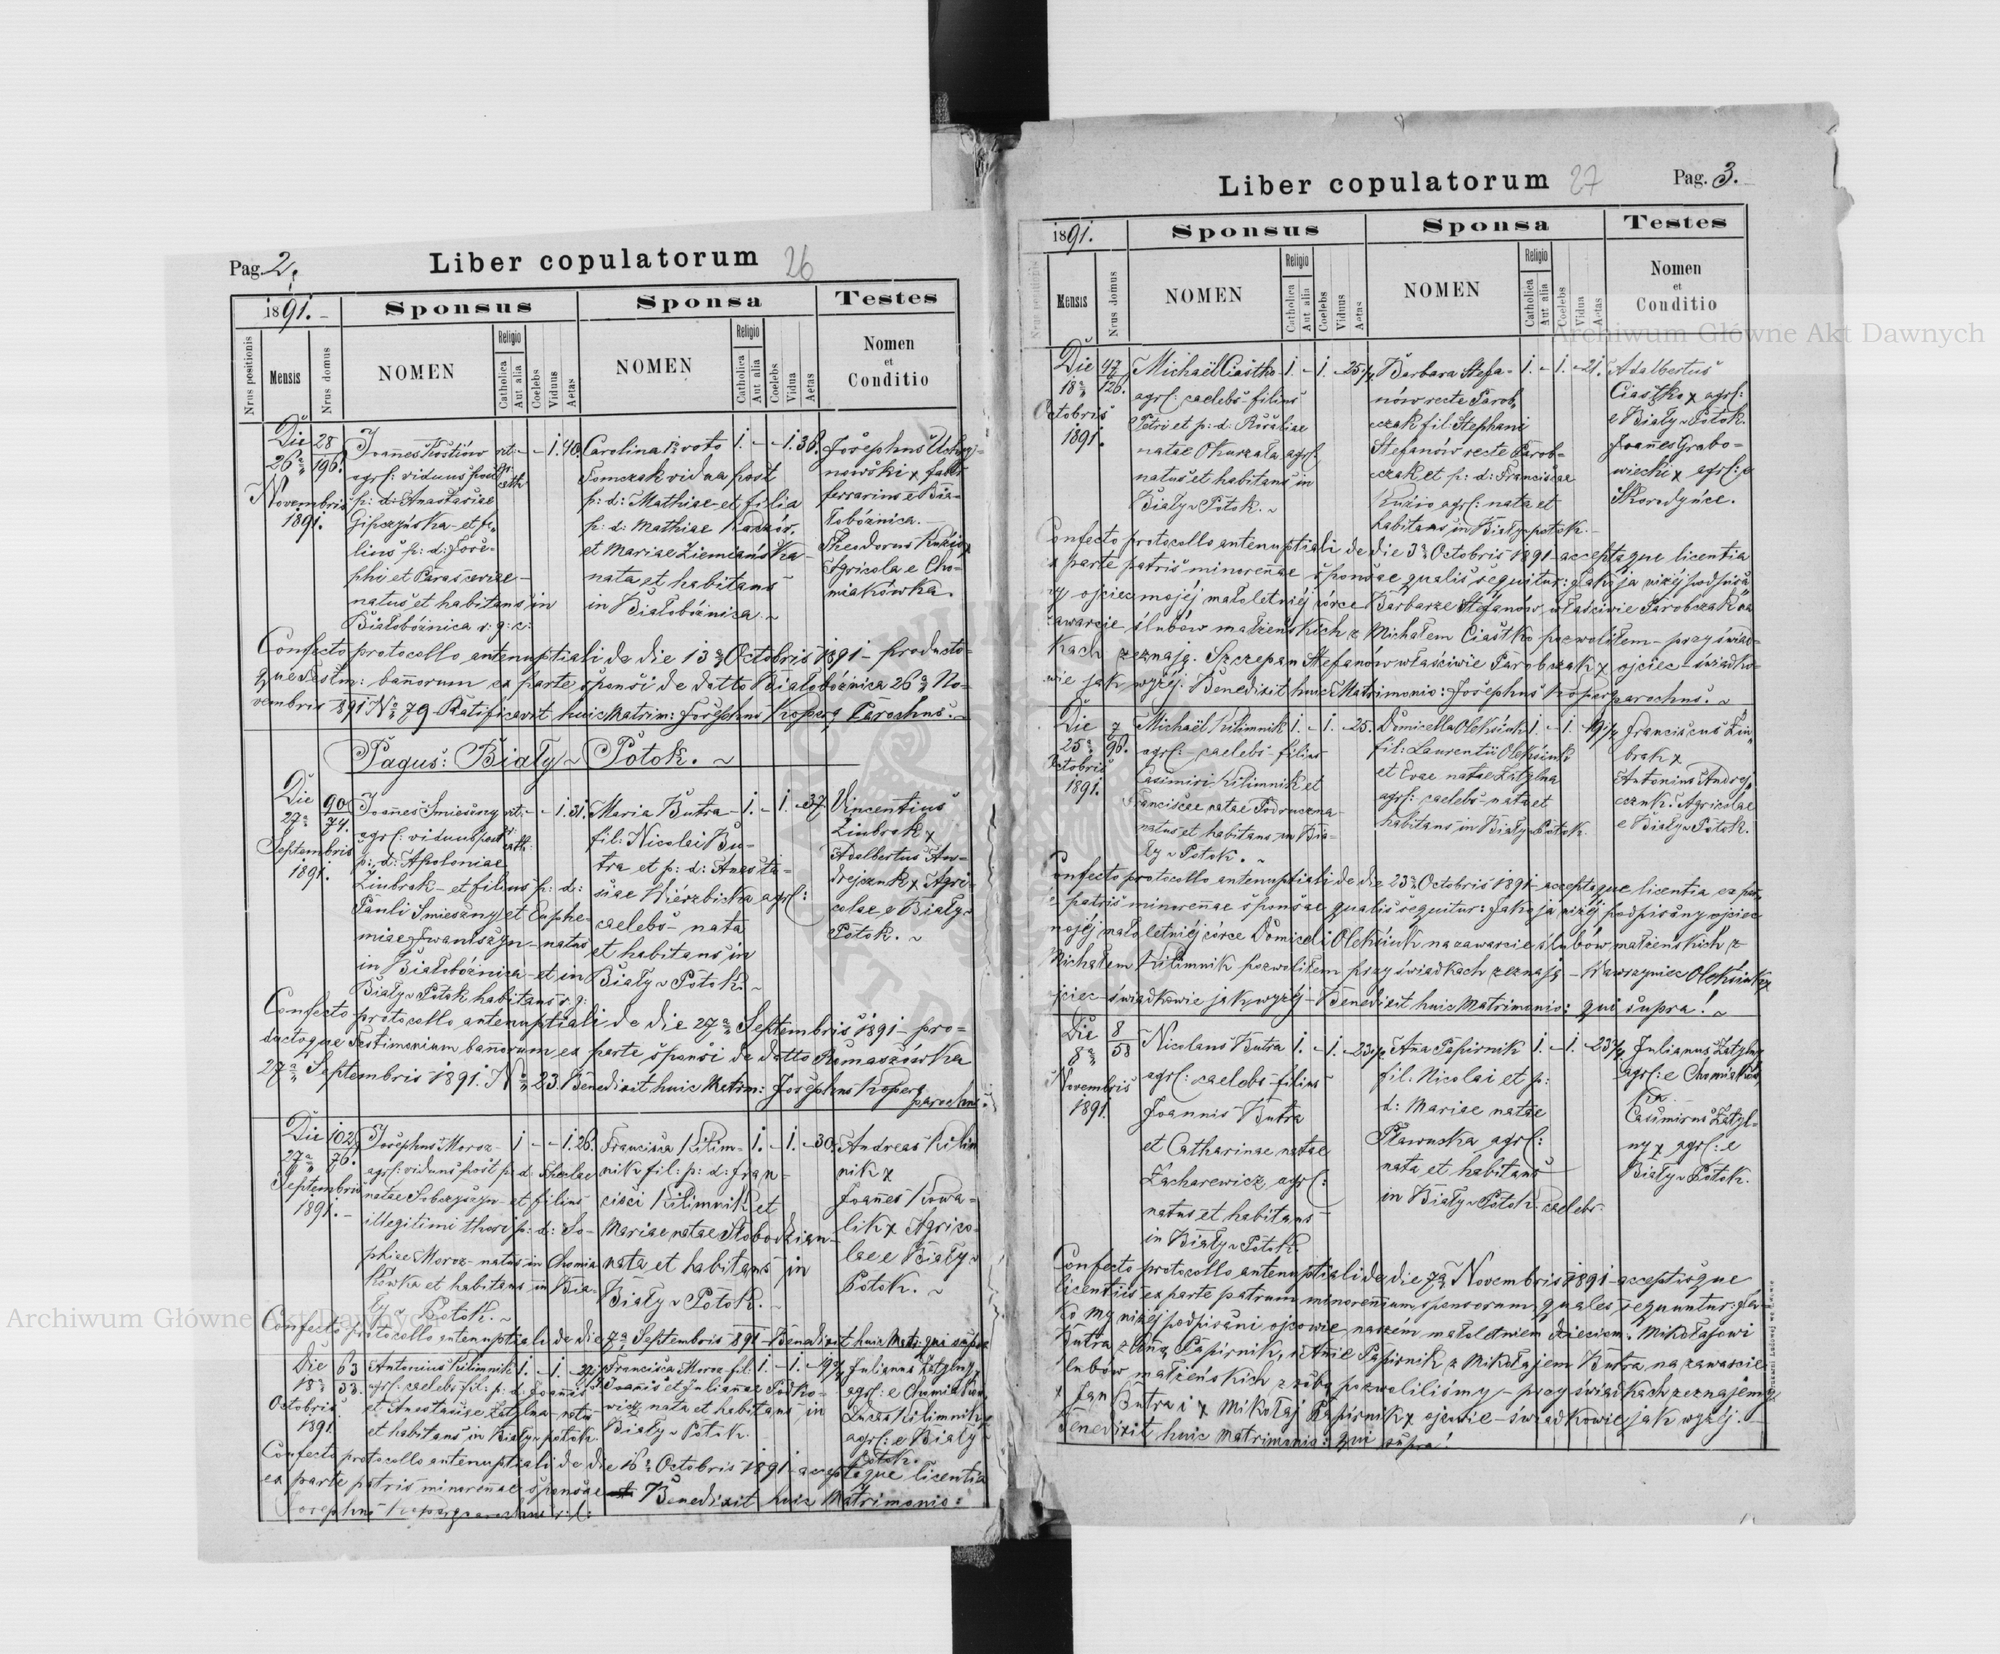 Pag. 2.
Liber copulatorum
26
1891.
Sponsus
Sponsa
Testes
Nrus positionis
Mensis
Nrus domus
NOMEN
Religio
Catholica
Aut alia
Coelebs
Viduus
Aetas
NOMEN
Religio
Catholica
Aut alia
Coelebs
Vidua
Aetas
Nomen
et
Conditio
Die
26a
Novembris
1891.
28
196.
Joannes Kostiów
agrl: viduus post
p: d: Anastasiae
Gipczyńska - et fi-
lius p: d: Jose-
phi et Parasceviae -
natus et habitans in
Białobożnica r: g: c:
rit:
gr:
cath
- 1. 40.
Carolina 1o voto
Tomczak vidua post
p: d: Mathiae - et filia
p: d: Mathiae
et Mariae Ziemiańska -
nata et habitans
in Białobożnica. ~
1. - - 1. 38.
Josephus
nowski x faber
ferrarius e Bia-
łobożnica. -
Theodorus Kuzio x
Agricola e Cho-
miakówka.
Confecto protocollo antenuptiali de die 13a Octobris 1891 - producto-
que testm: bannorum ex parte sponsi de datto Białobożnica 26a No-
vembris 1891 No 79 - Ratificavit huic Matrim: Josephus Koperg Parochus. -
Pagus: Biały ~ Potok. ~
Die
27a
Septembris
1891.
90
74.
Joannes Smieszny
agrl: viduus post
p: d: Apoloniae
Zinbrak - et filius p: d:
Pauli Smieszny et Euphe-
miae Iwaniszyn - natus
in Białobożnica - et in
Biały ~ Potok habitans r. g:
rit:
gr:
cath:
- - 1. 31.
Maria Butra -
fil: Nicolai Bu-
tra et p: d: Anasta-
siae Wierzbicka agrl:
caelebs - nata
et habitans in
Biały ~ Potok. ~
1. - 1. - 37.
Vincentius
Zinbrak x
Adalbertus An-
drejczuk x Agri-
colae e Biały ~
Potok. ~
Confecto protocollo antenuptiali de die 27a Septembris 1891 - pro-
ductoque Testimonium bannorum ex parte sponsi de datto Romaszówka
27a Septembris 1891. No 23. Benedixit huic Matrim: Josephus Koperg
parochus.
Die
27a
Septembris
1891. -
102
76.
Josephus Moroz -
agrl: viduus post p: d: Theclae
natae Sobczyszyn - et filius
illegitimi thori p: d: So-
phiae Moroz - natus in Chomia-
kówka et habitans in Bia-
ły ~ Potok. ~
1 - - 1. 26.
Francisca Kilim-
nik fil: p: d: Fran-
cisci Kilimnik et
Mariae natae Słobodzian -
nata et habitans in
Biały ~ Potok. ~
1. - 1. - 30.
Andreas Kilim-
nik x
Joannes Kowa-
lik x Agrico-
lae e Biały ~
Potok. ~
Confecto protocollo antenuptiali de die 7a Septembris 1891 - Benedixit huic Matr: qui supra
Die
18a
Octobris
1891.
63
53.
Antonius Kilimnik
agrl. caelebs fil: p: d: Joannis
et Anastasiae Zatylna - natus
et habitans in Biały ~ potok.
1. - 1. -
Francisca Moroz fil:
Joannis et Juliannae Podko-
wicz nata et habitans in
Biały ~ Potok.
1. - 1. -
Julianus Zatylny x
agrl: e Chomiakow
Lucas Kilimnik x
agrl: e Biały ~
Potok.
Confecto protocollo antenuptiali de die 16a Octobris 1891 - acceptaque licentia
ex parte patris minorennae sponsae Benedixit huic Matrimonio:
Josephus Koperg parochus
Liber copulatorum
27
Pag. 3.
1891.
Sponsus
Sponsa
Testes
Nrus positionis
Mensis
Nrus domus
NOMEN
Religio
Catholica
Aut alia
Coelebs
Viduus
Aetas
NOMEN
Religio
Catholica
Aut alia
Coelebs
Vidua
Aetas
Nomen
et
Conditio
Die
18a
Octobris
1891.
47
126.
Michaël Ciastko
agrl: caelebs filius
Petri et p: d: Rosaliae
natae Okurzała agrl
natus et habitans in
Biały ~ Potok. ~
1. - 1. - 25
Barbara Stefa-
nów recte Parob-
czak fil: Stephani
Stefanów recte Parob-
czak et p: d: Franciscae
Kuzio agrl: nata et
habitans in Biały ~ potok. -
1. - 1. - 21.
Adalbertus
Ciastko x agrl:
e Biały ~ Potok.
Joannes Grabo-
wiecki x agrl: e
Skorodyńce.
Confecto protocollo antenuptiali de die 3a Octobris 1891 - acceptaque licentia
x parte patris minorennae sponsae qualis sequitur: Jako ja niżej podpisa-
ny ojciec mojéj małoletniéj córce Barbarze Stefanów właściwie Parobczak na
zawarcie ślubów małżeńskich z Michałem Ciastko pozwoliłem - przy świad-
kach zeznaję. Szczepan Stefanów właściwie Parobczak x ojciec - świadko-
wie jak wyżéj. Benedixit huic Matrimonio: Josephus Koperg parochus. ~
Die
25a
Octobris
1891.
7
96.
Michaël Kilimnik
agrl: - caelebs - filius
Casimiri Kilimnik et
Franciscae natae Podruczna -
natus et habitans in Bia-
ły ~ Potok. ~
1. - 1. - 25.
Domicella Oleksiuk
fil: Laurentii Oleksiuk
et Evae natae Zatylna
agrl: caelebs - nata et
habitans in Biały ~ Potok.
1. - 1. - 19
Franciscus Zin-
brak x
Antonius Andrej-
czuk. Agricolae
e Biały ~ Potok.
Confecto protocollo antenuptiali de die 23a Octobris 1891 - acceptaque licentia ex par-
e patris minorennae sponsae qualis sequitur: Jako ja niżéj podpisany ojciec
mojéj małoletniéj córce Domiceli Oleksiuk na zawarcie ślubów małżeńskich z
Michałem Kilimnik pozwoliłem przy świadkach zeznaję - Wawrzyniec Oleksiuk x
ojciec - świadkowie jak wyżéj - Benedixit huic Matrimonio: qui supra! ~
Die
8a
Novembris
1891.
8
58
Nicolaus Butra
agrl: caelebs - filius
Joannis Butra
et Catharinae natae
Zacharewicz agrl:
natus et habitans
in Biały ~ Potok.
1. - 1. - 23
Anna Papirnik
fil: Nicolai et p:
d: Mariae natae
Pławuska agrl:
nata et habitans
in Biały ~ Potok caelebs.
1. - 1. - 23
Julianus Zatylny x
agrl: e Chomiakow
ka.
Casimirus Zatyl-
ny x agrl: e
Biały ~ Potok.
Confecto protocollo antenuptiali de die 7a Novembris 1891 - acceptisque
licentiis ex parte patrum minorennium sponsorum, quales sequuntur: Ja-
ko my niżéj podpisani ojcowie, naszém małoletniem dzieciom: Mikołajowi
Butra z Anną Papirnik, i Annie Papirnik z Mikołajem Butra na zawarcie
ślubów małżeńskich z sobą pozwoliliśmy - przy świadkach zeznajemy
x Jan Butra i x Mikołaj Papirnik x ojcowie - świadkowie jak wyżéj. -
Benedixit huic Matrimonio: qui supra!
Archiwum Główne Akt Dawnych
Archiwum Główne Akt Dawnych